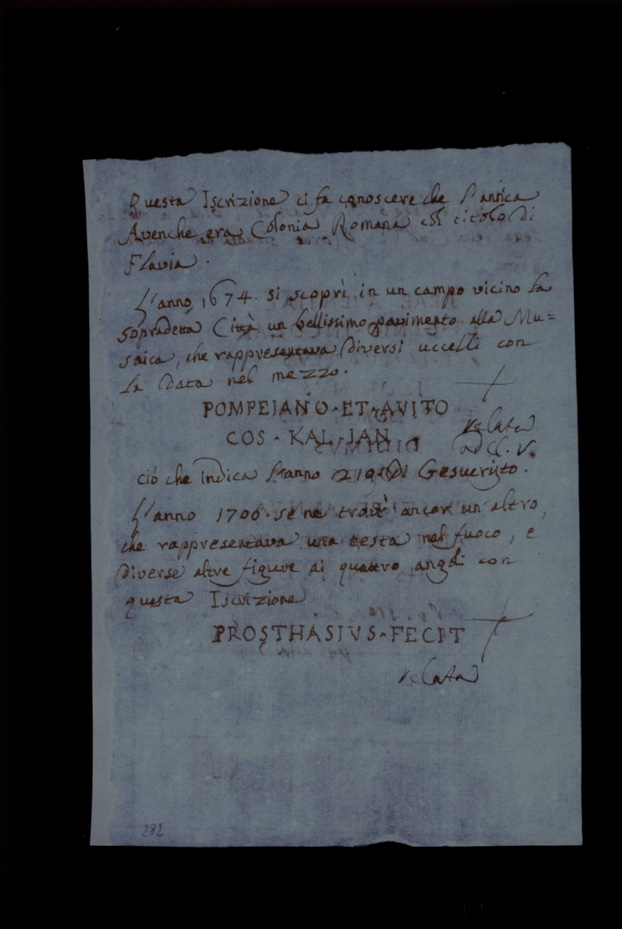 Questa Iscrizione ci fa conoscere che l'antica
Avenche era Colonia Romana col titolo di
Flavia.
L'anno 1674. si scoprì in un campo vicino la
sopradetta Città un bellissimo pavimento alla Mu=
saica, che rappresentava diversi uccelli con
la data nel mezzo.
POMPEIANO·ET·AVITO
COS·KAL·JAN
relata
Cl. V.
ciò che indica l'anno di Gesucristo.
L'anno 1706. se ne trovò ancor un altro,
che rappresentava una testa nel fuoco, e
diverse altre figure ai quattro angoli con
questa Iscrizione
PROSTHASIVS·FECIT
relata
282